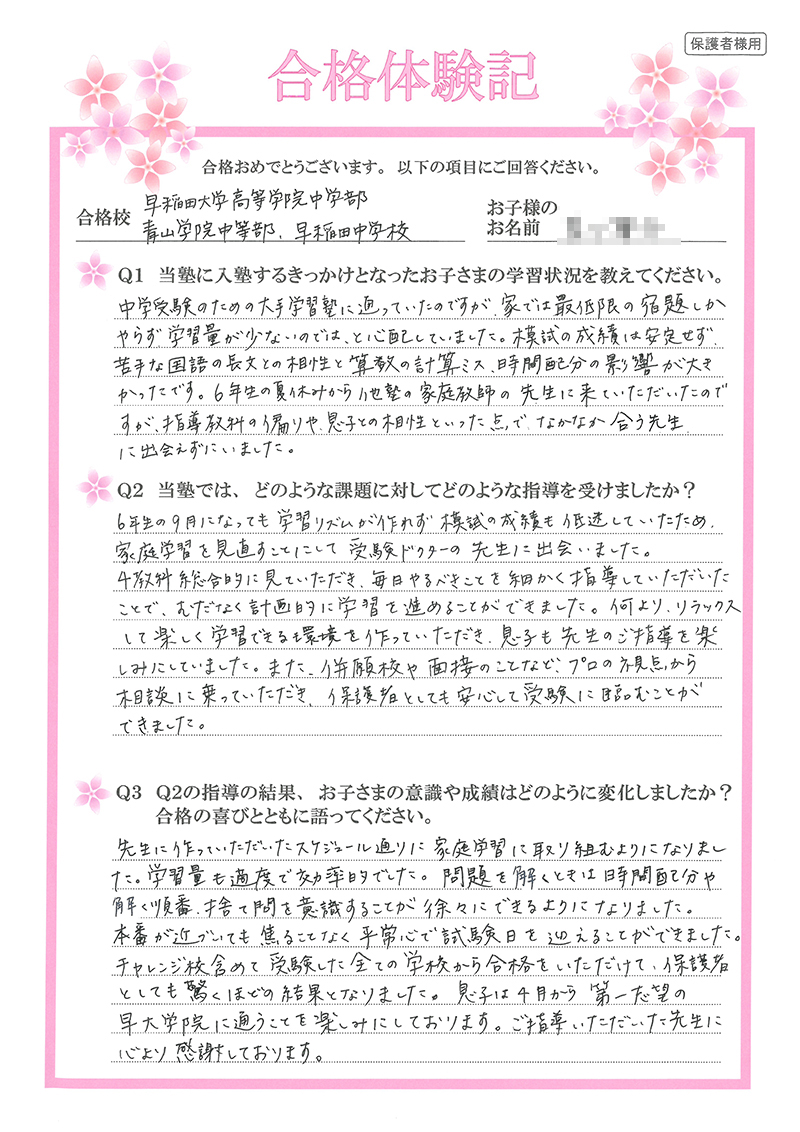 保護者様用
合格体験記
合格おめでとうございます。以下の項目にご回答ください。
合格校
早稲田大学高等学院中学部
青山学院中等部、早稲田中学校
お子様の
お名前
Q1 当塾に入塾するきっかけとなったお子さまの学習状況を教えてください。
中学受験のための大手学習塾に通っていたのですが、家では最低限の宿題しか
やらず、学習量が少ないのでは、と心配していました。模試の成績は安定せず、
苦手な国語の長文との相性と算数の計算ミス、時間配分の影響が大き
かったです。6年生の夏休みから他塾の家庭教師の先生に来ていただいたので
すが、指導教科の偏りや、息子との相性といった点で、なかなか合う先生
に出会えずにいました。
Q2 当塾では、どのような課題に対してどのような指導を受けましたか？
6年生の9月になっても学習リズムが作れず模試の成績も低迷していたため、
家庭学習を見直すことにして受験ドクターの先生に出会いました。
4教科総合的に見ていただき、毎日やるべきことを細かく指導していただいた
ことで、むだなく計画的に学習を進めることができました。何より、リラックス
して楽しく学習できる環境を作っていただき、息子も先生のご指導を楽
しみにしていました。また、併願校や面接のことなど、プロの視点から
相談に乗っていただき、保護者としても安心して受験に臨むことが
できました。
Q3 Q2の指導の結果、お子さまの意識や成績はどのように変化しましたか？
合格の喜びとともに語ってください。
先生に作っていただいたスケジュール通りに家庭学習に取り組むようになりまし
た。学習量も適度で効率的でした。問題を解くときは時間配分や
解く順番、捨て問を意識することが徐々にできるようになりました。
本番が近づいても焦ることなく平常心で試験日を迎えることができました。
チャレンジ校含めて受験した全ての学校から合格をいただけて、保護者
としても驚くほどの結果となりました。息子は4月から第一志望の
早大学院に通うことを楽しみにしております。ご指導いただいた先生に
心より感謝しております。